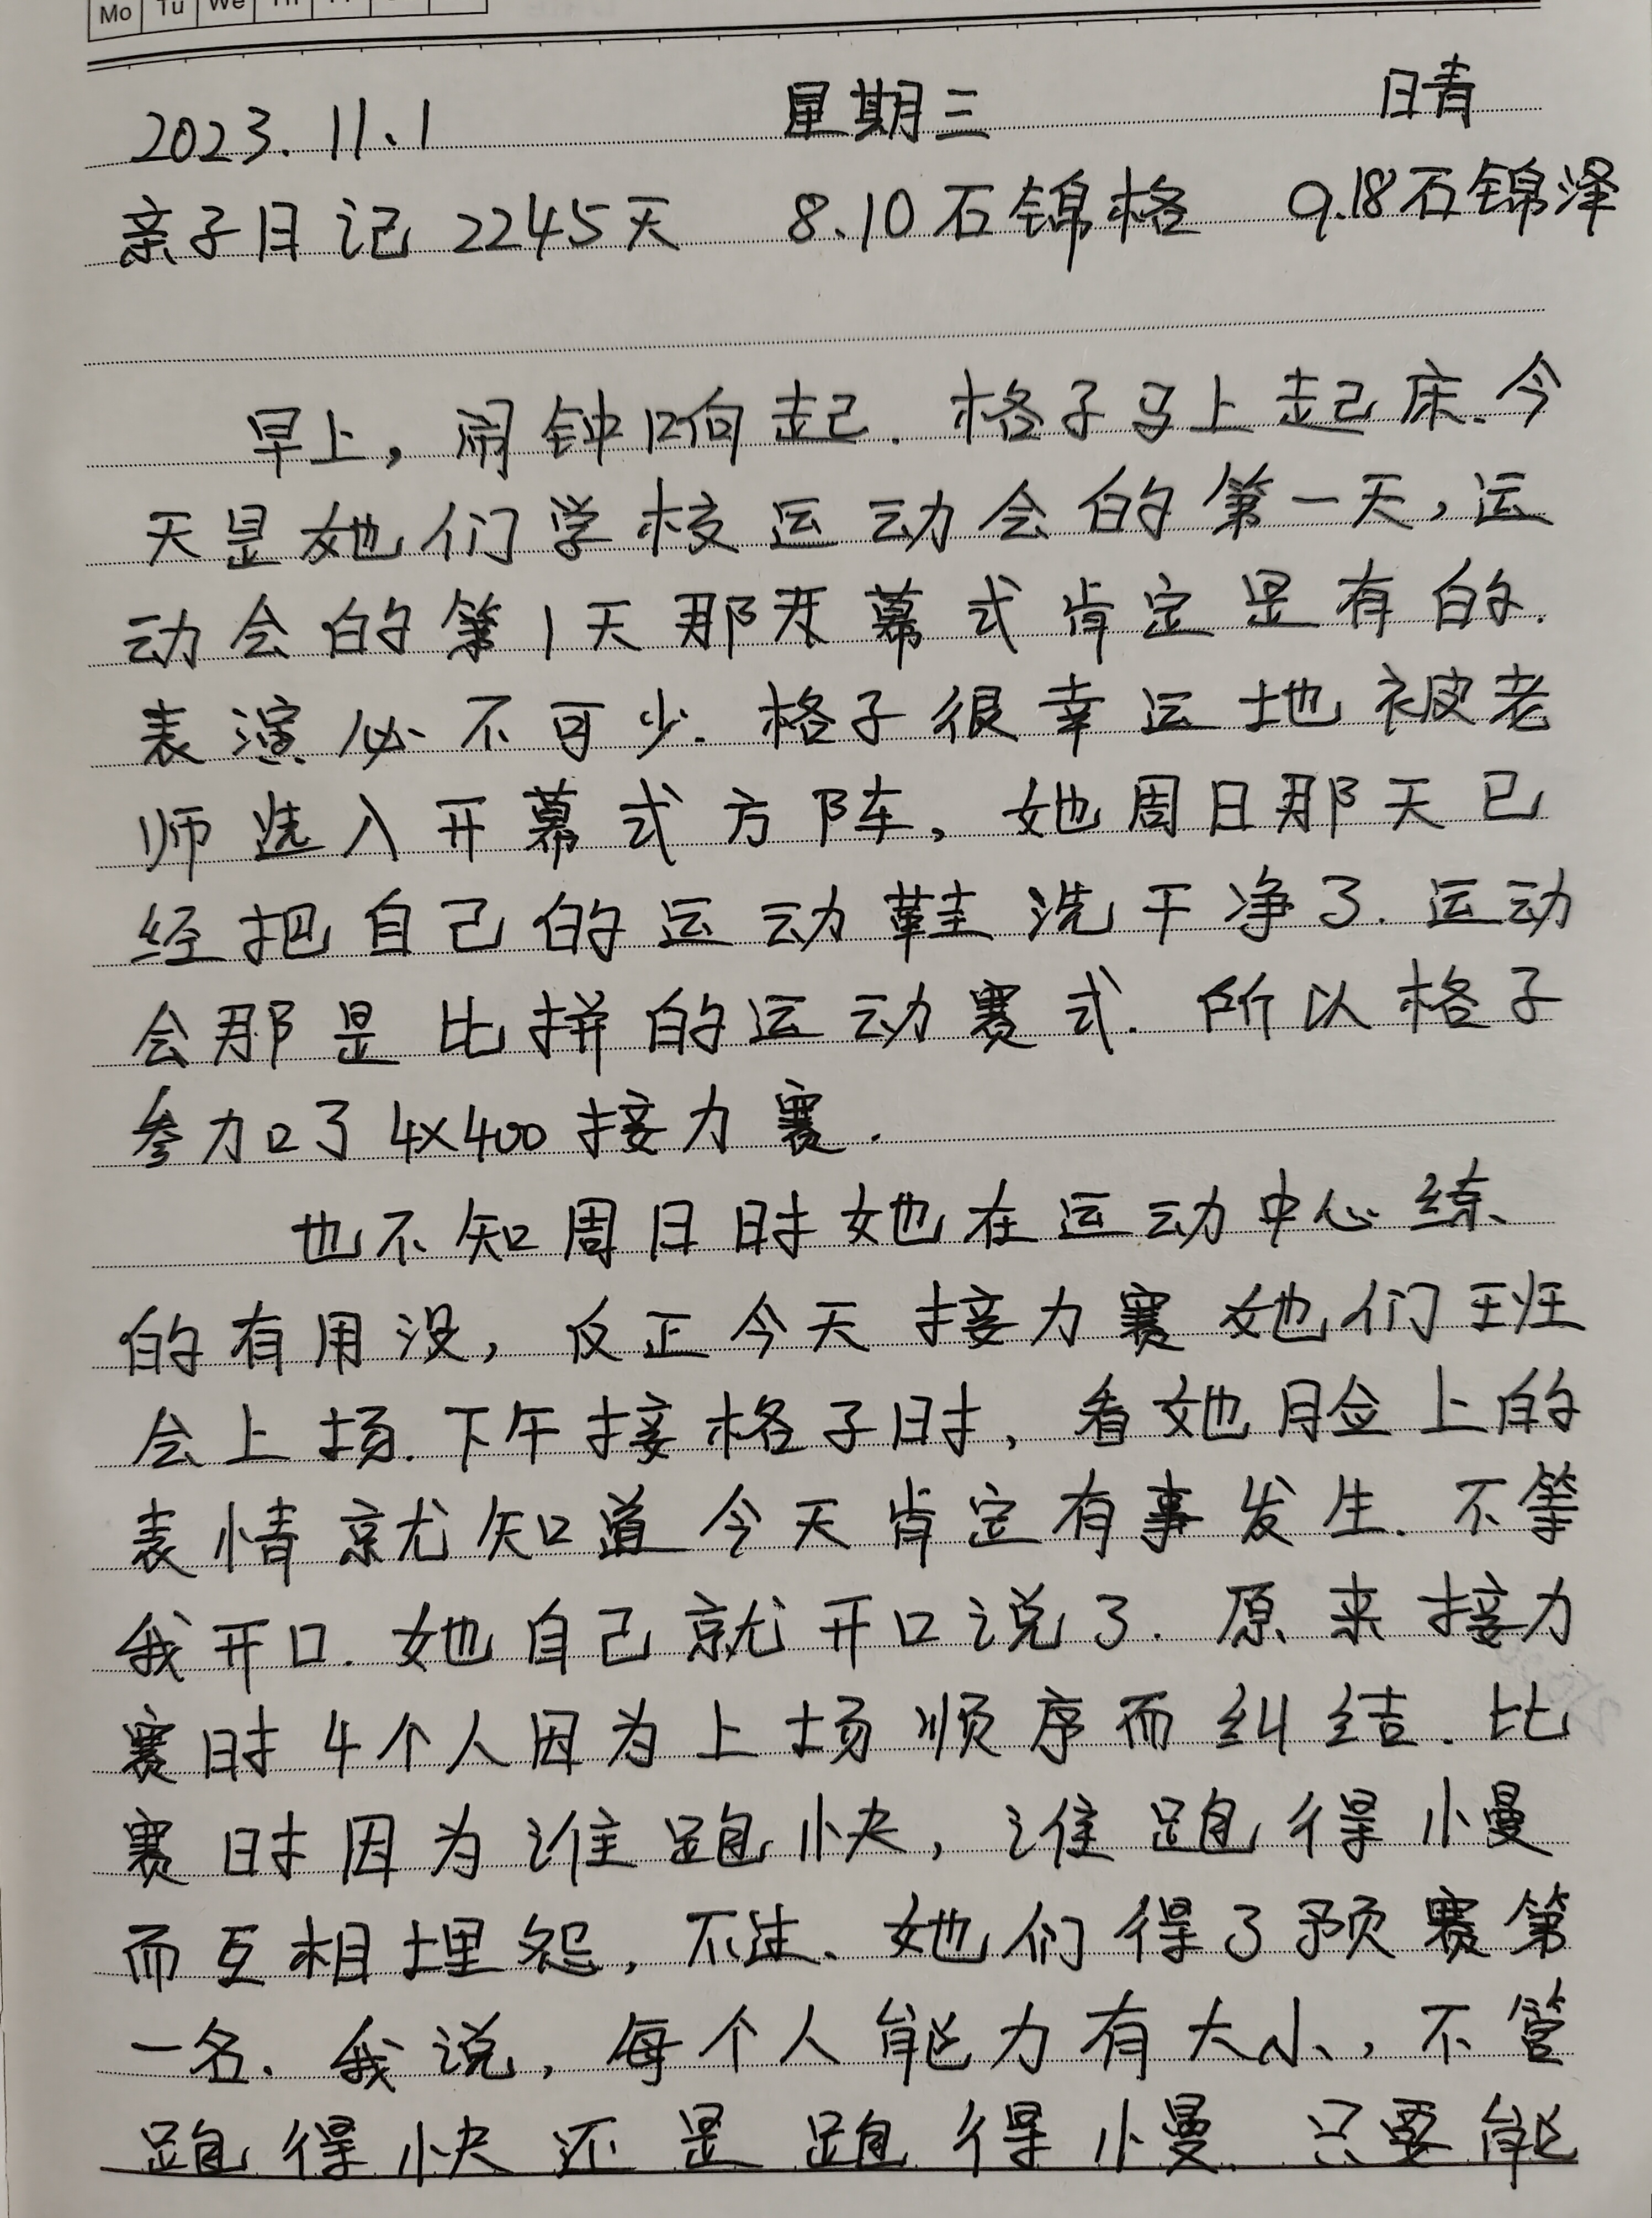 Mo Tu We
2023.11.1 星期三 晴
亲子日记2245天 8.10石锦格 9.18石锦泽
早上,闹钟响起.格子马上起床.今
天是她们学校运动会的第一天,运
动会的第1天那开幕式肯定是有的.
表演必不可少.格子很幸运地被老
师选入开幕式方阵,她周日那天已
经把自己的运动鞋洗干净了.运动
会那是比拼的运动赛式.所以格子
参加了4×400接力赛.
也不知周日时她在运动中心练
的有用没,反正今天接力赛她们班
会上场.下午接格子时,看她脸上的
表情就知道今天肯定有事发生.不等
我开口.她自己就开口说了.原来接力
赛时4个人因为上场顺序而纠结.比
赛时因为谁跑快,谁跑得慢
而互相埋怨,不过、她们得了预赛第
一名.我说,每个人能力有大小,不管
跑得快还是跑得慢.只要能